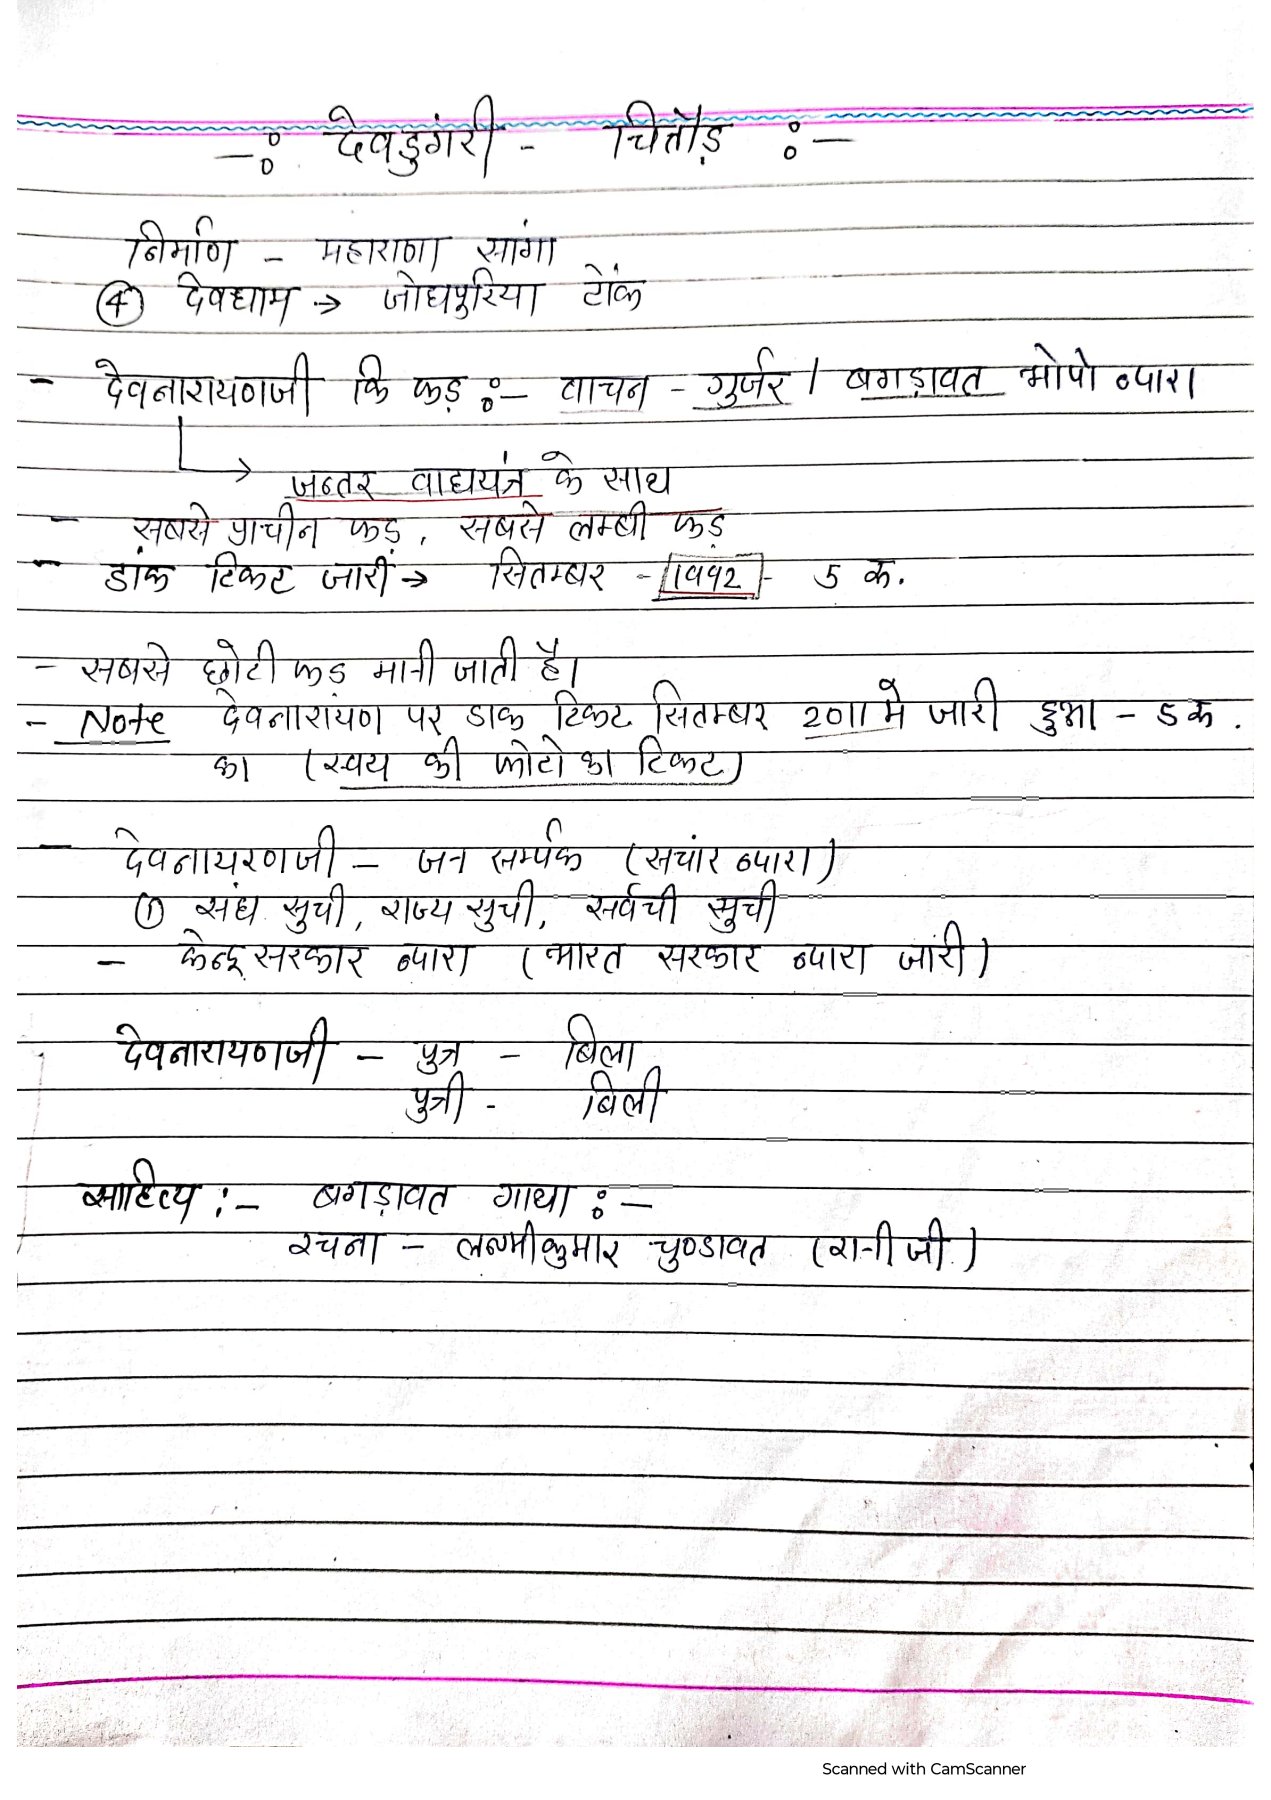 -: देवडुगंरी - चितौड़ :-
निर्माण - महाराणा सांगा
④ देवधाम → जोधपुरिया टोंक
- देवनारायणजी कि फड़ :- वाचन - गुर्जर / बगड़ावत भोपो व्दारा
जन्तर वाद्ययंत्र के साथ
- सबसे प्राचीन फड़, सबसे लम्बी फड़
- डांक टिकट जारी → सितम्बर - १९९२ - 5 रू.
- सबसे छोटी फड़ मानी जाती है।
- Note देवनारायंण पर डाक टिकट सितम्बर 2011 मे जारी हुआ - 5 रू.
का (स्वय की फोटो का टिकट)
- देवनायरणजी - जन सर्म्पक (सचांर व्दारा)
① संघ सुची, राज्य सुची, सर्वची सुची
- केन्द्र सरकार व्दारा (भारत सरकार व्दारा जारी)
देवनारायणजी - पुत्र - बिला
पुत्री - बिली
साहित्य :- बगड़ावत गाथा :-
रचना - लक्ष्मीकुमार चुण्डावत (रानी जी)
Scanned with CamScanner